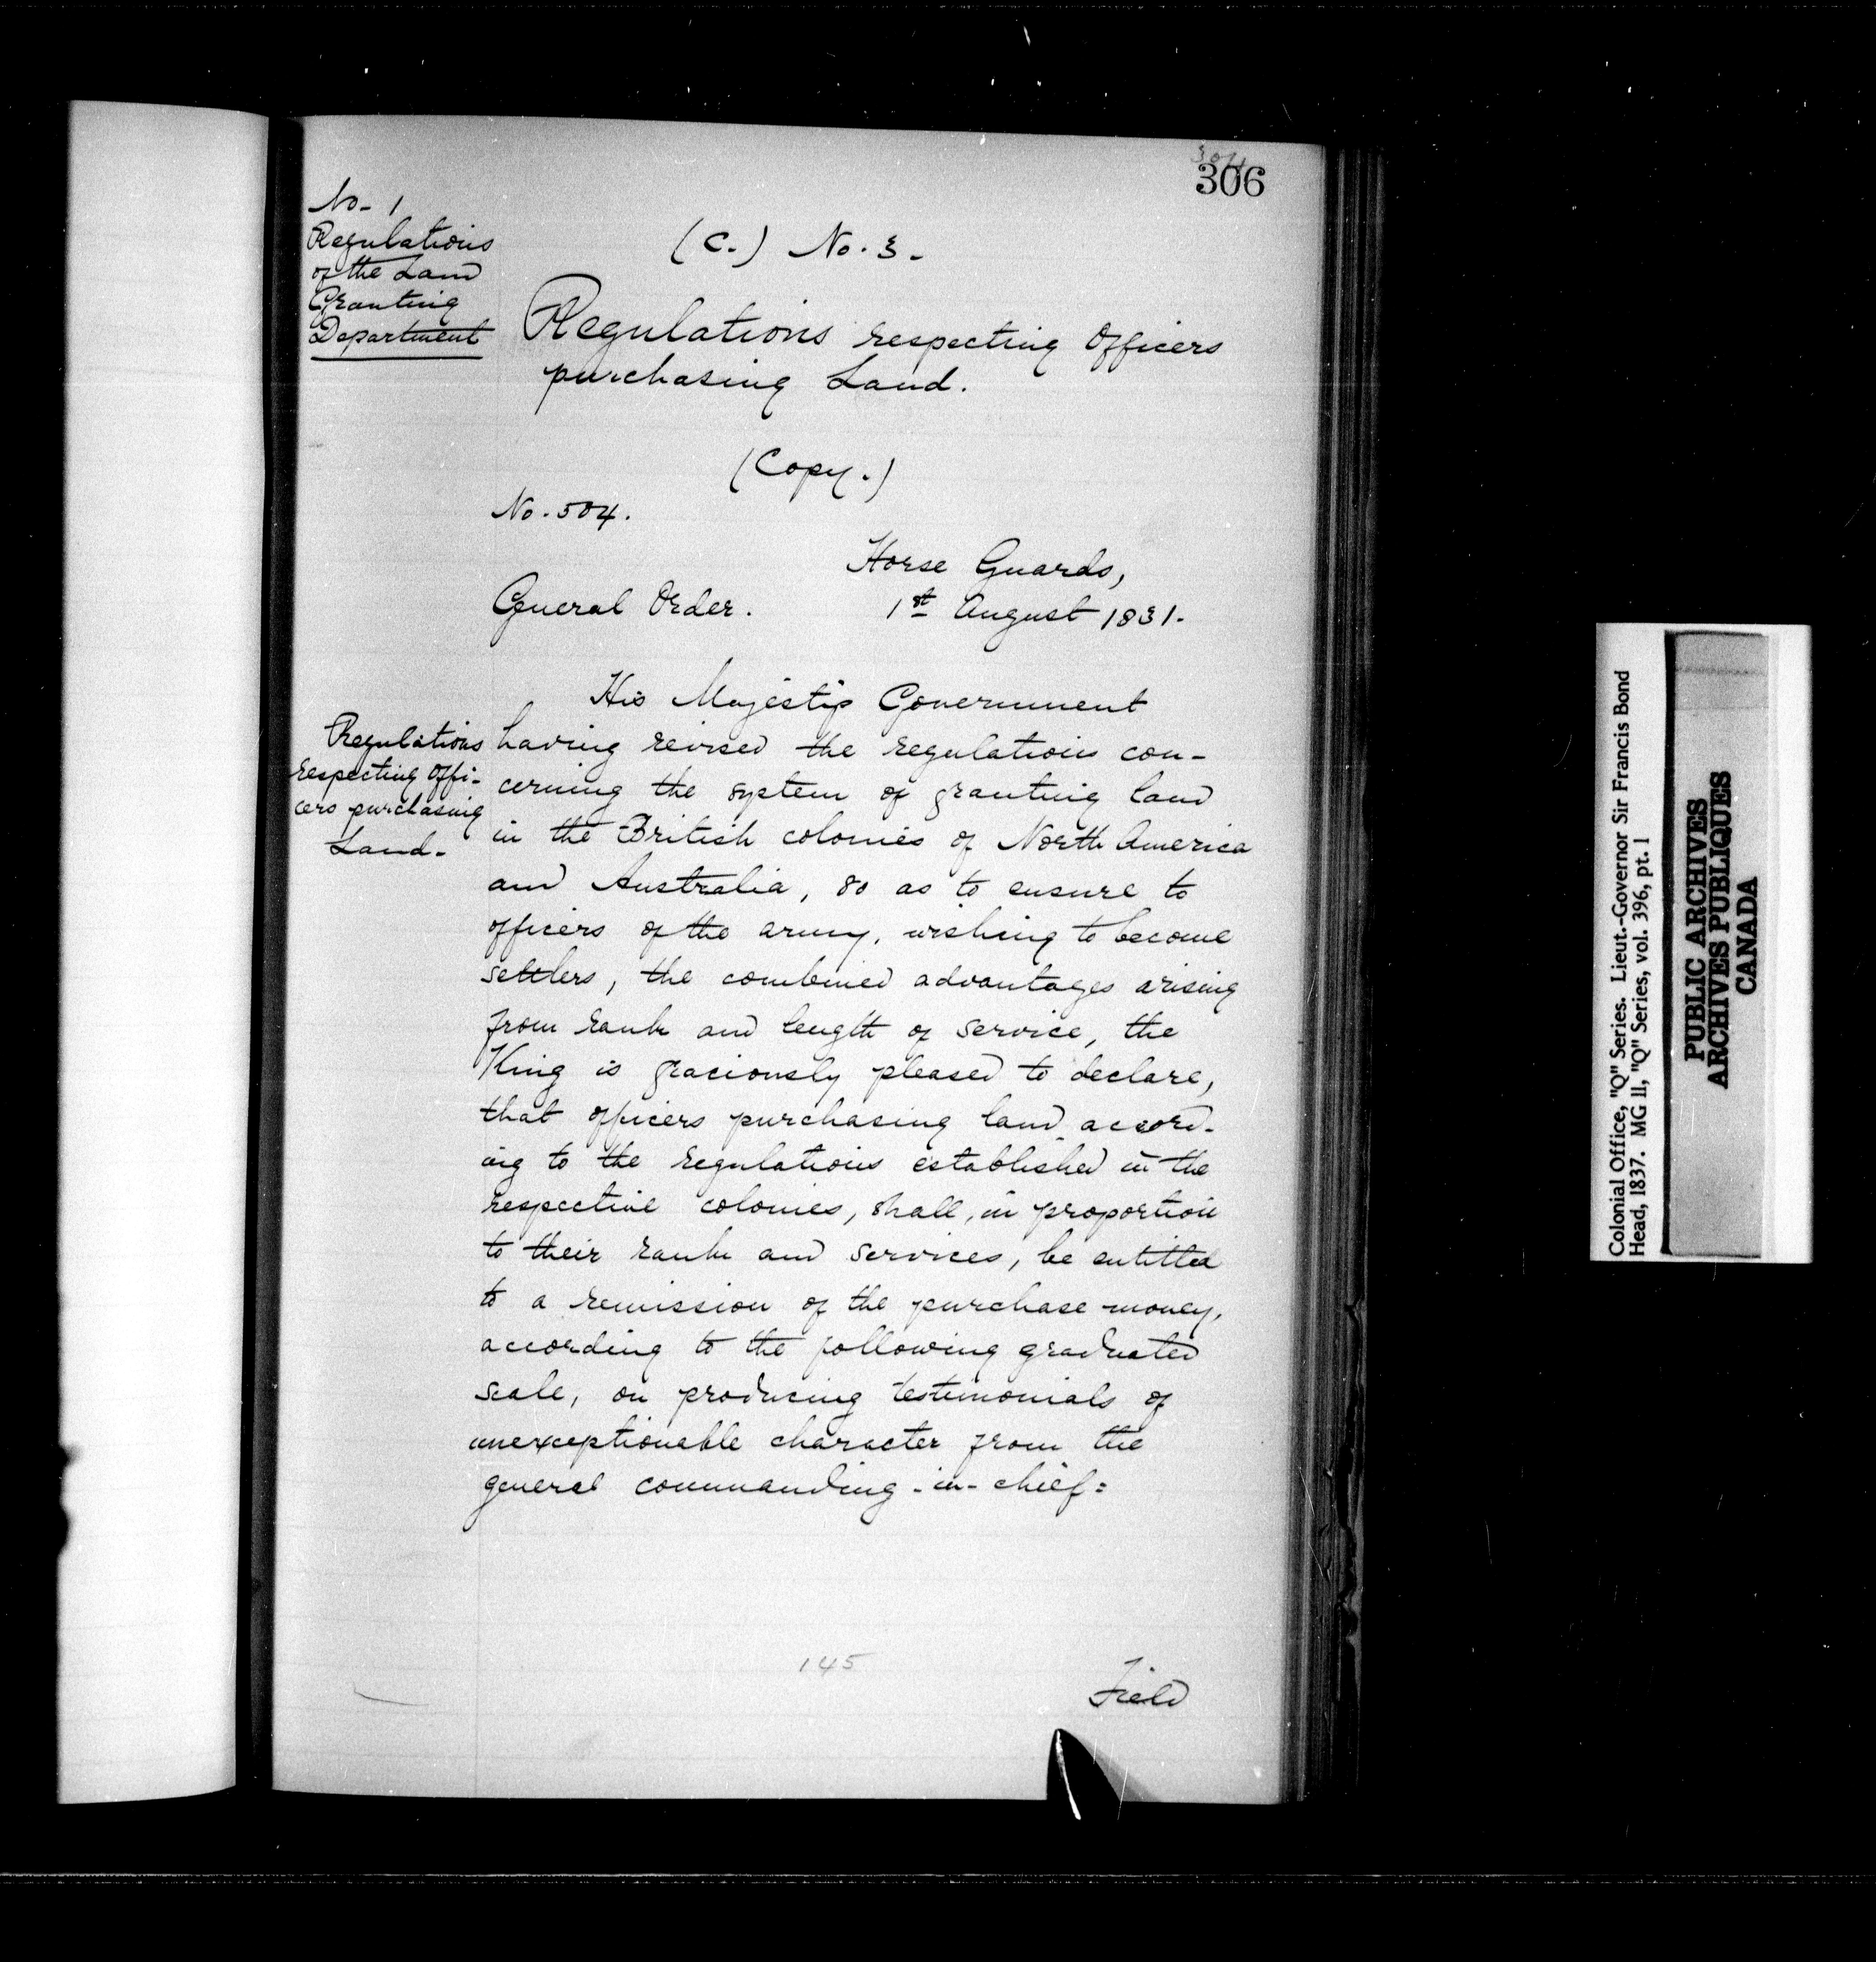 306
No. 1
Regulations
of the Land
Granting
Department
(C.) No. 3.
Regulations respecting Officers
purchasing Land.
(Copy.)
No. 504.
Horse Guards,
General Order. 1st August 1831.
His Majesty's Government
Regulations
respecting Offi-
cers purchasing
Land.
having revised the regulations con-
cerning the system of granting land
in the British colonies of North America
and Australia, so as to ensure to
officers of the army, wishing to become
settlers, the combined advantages arising
from rank and length of service, the
King is graciously pleased to declare,
that officers purchasing land accord-
ing to the regulations established in the
respective colonies, shall, in proportion
to their rank and services, be entitled
to a remission of the purchase money,
according to the following graduated
scale, on producing testimonials of
unexceptionable character from the
general commanding-in-chief:
145
Field
Colonial Office, "Q" Series. Lieut.-Governor Sir Francis Bond
Head, 1837. MG 11, "Q" Series, vol. 396, pt. 1
PUBLIC ARCHIVES
ARCHIVES PUBLIQUES
CANADA